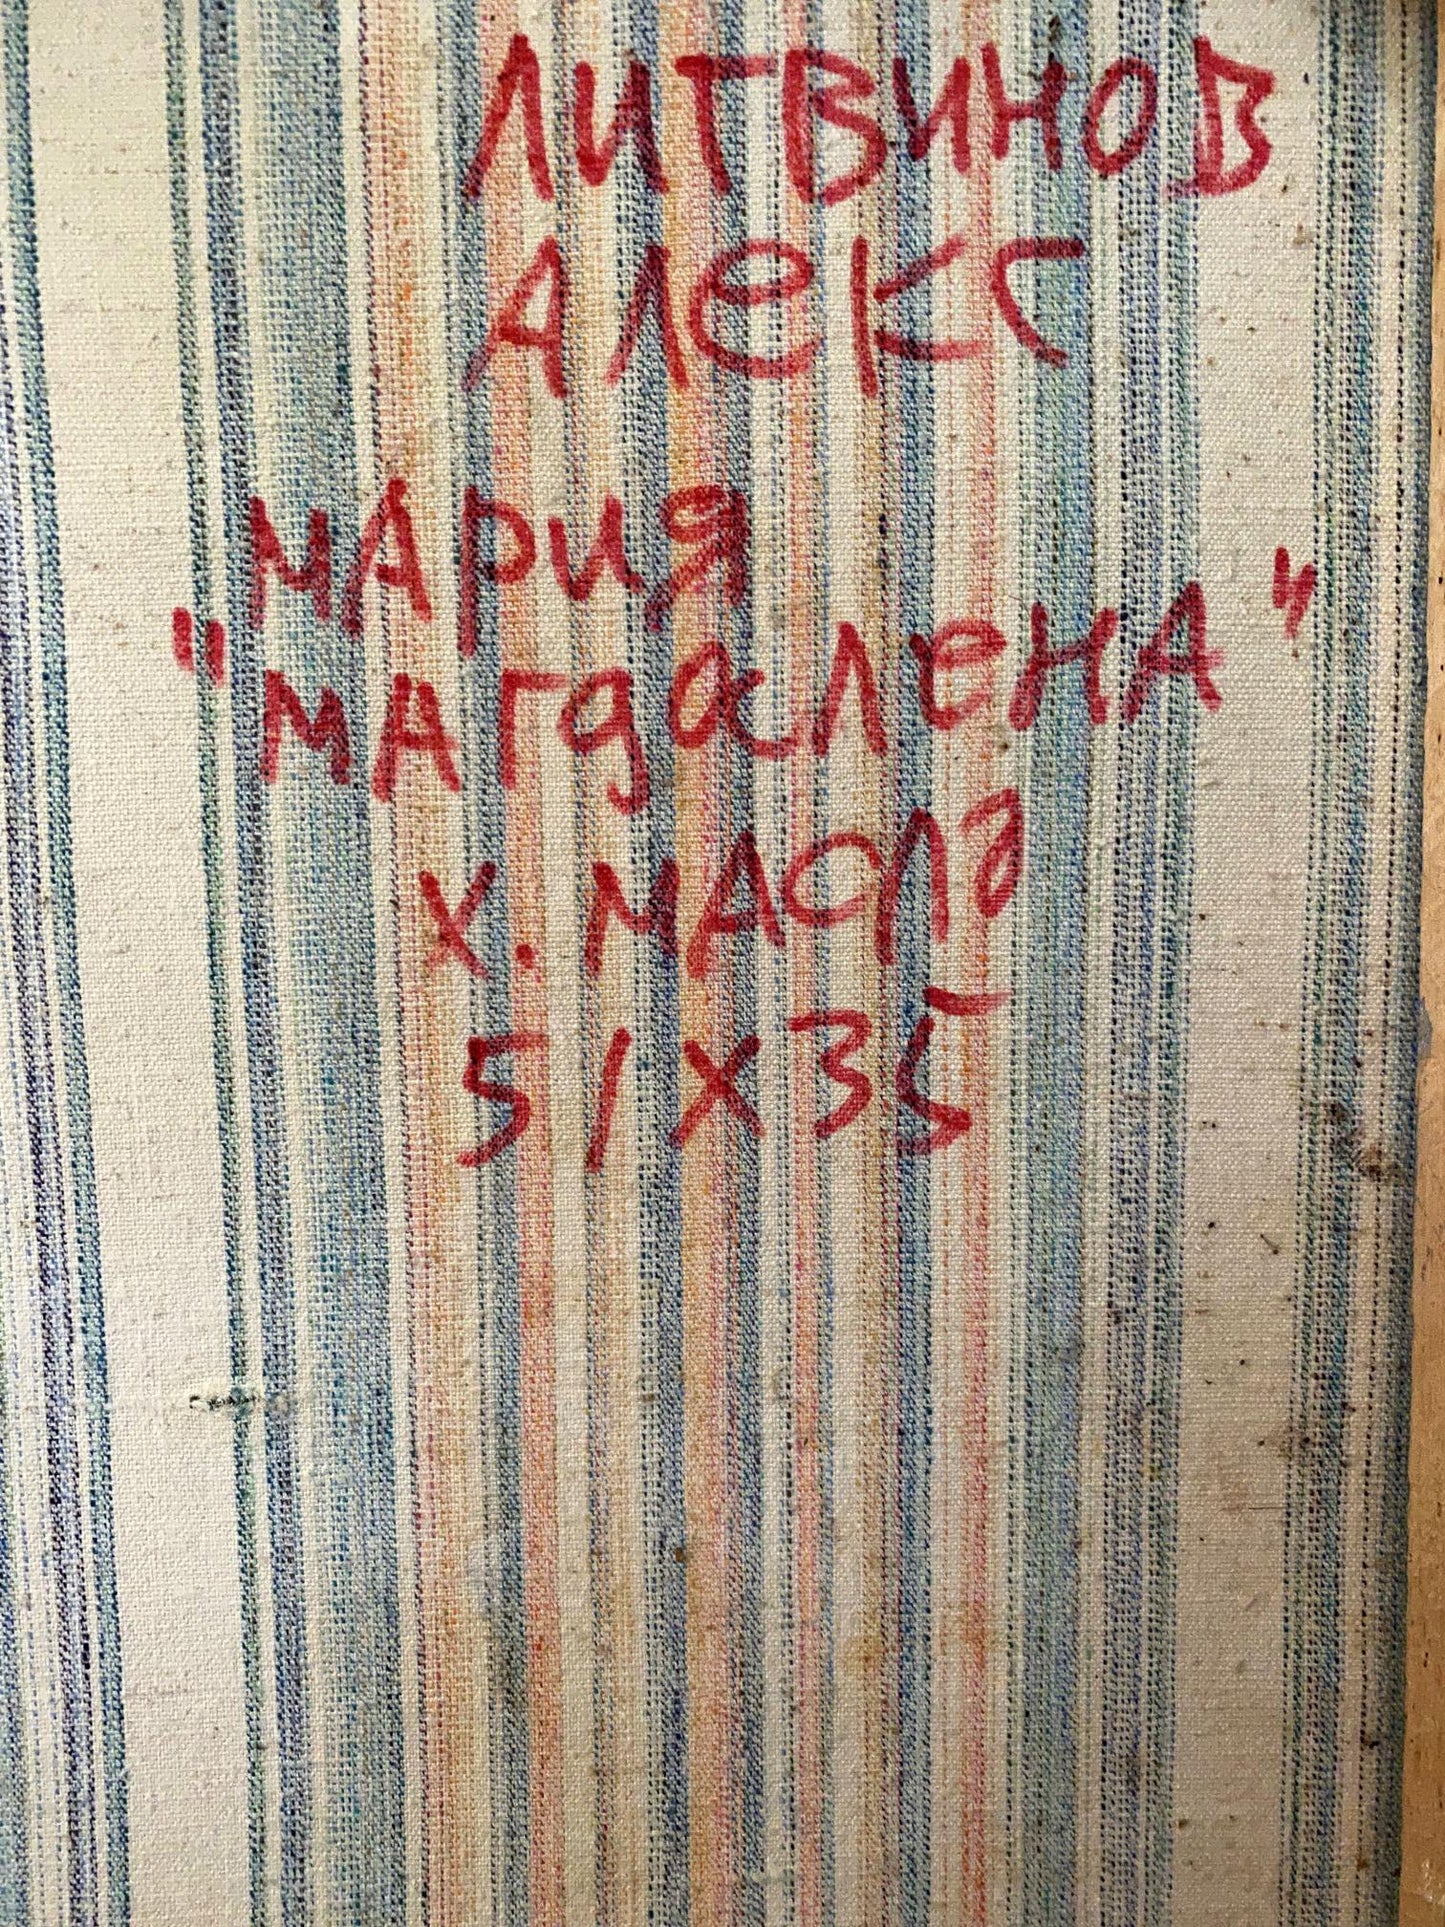 ЛИТВИНОВ
АЛЕКС
МАРИЯ
"МАГДАЛЕНА"
Х. МАСЛО
51Х35